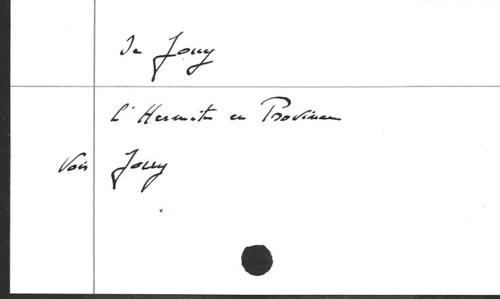 De Jouy
L'Hermite en Province
Voir Jouy